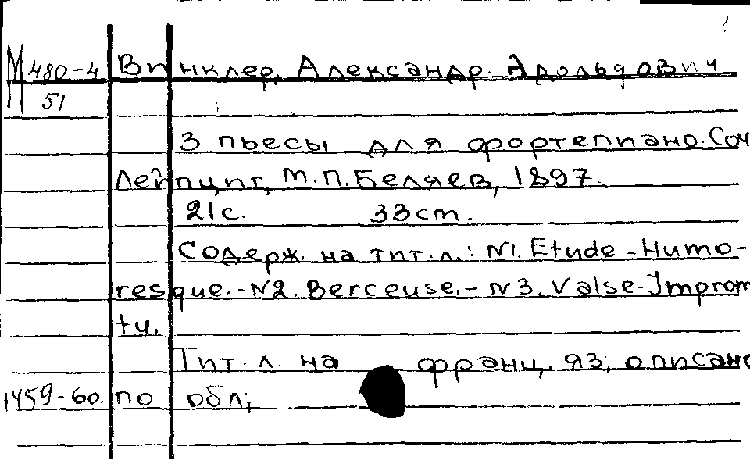 М 480-4 Винклер, Александр Адольфович
51
3 пьесы для фортепиано. Соч
Лейпциг, М.П.Беляев, 1897.
21с. 33cm.
Содерж. на тит.л.: N1. Etude-Humo-
resque.-N2. Berceuse.-N3. Valse-Impromp
tu.
Тит.л на франц. яз, описано
1459-60 по обл;